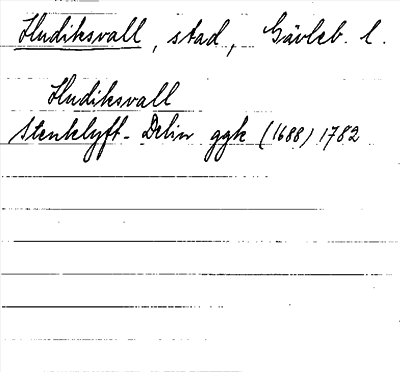 Hudiksvall, stad, Gävleb. l.
Hudiksvall
Stenklyft- Delin ggk (1688) 1782